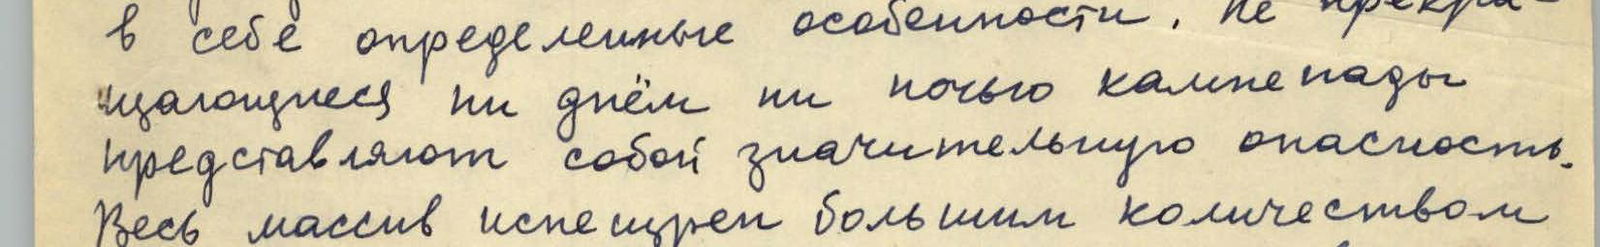 в себе определенные особенности. Не прекра-
щающиеся ни днём ни ночью камнепады
представляют собой значительную опасность.
Весь массив испещрен большим количеством